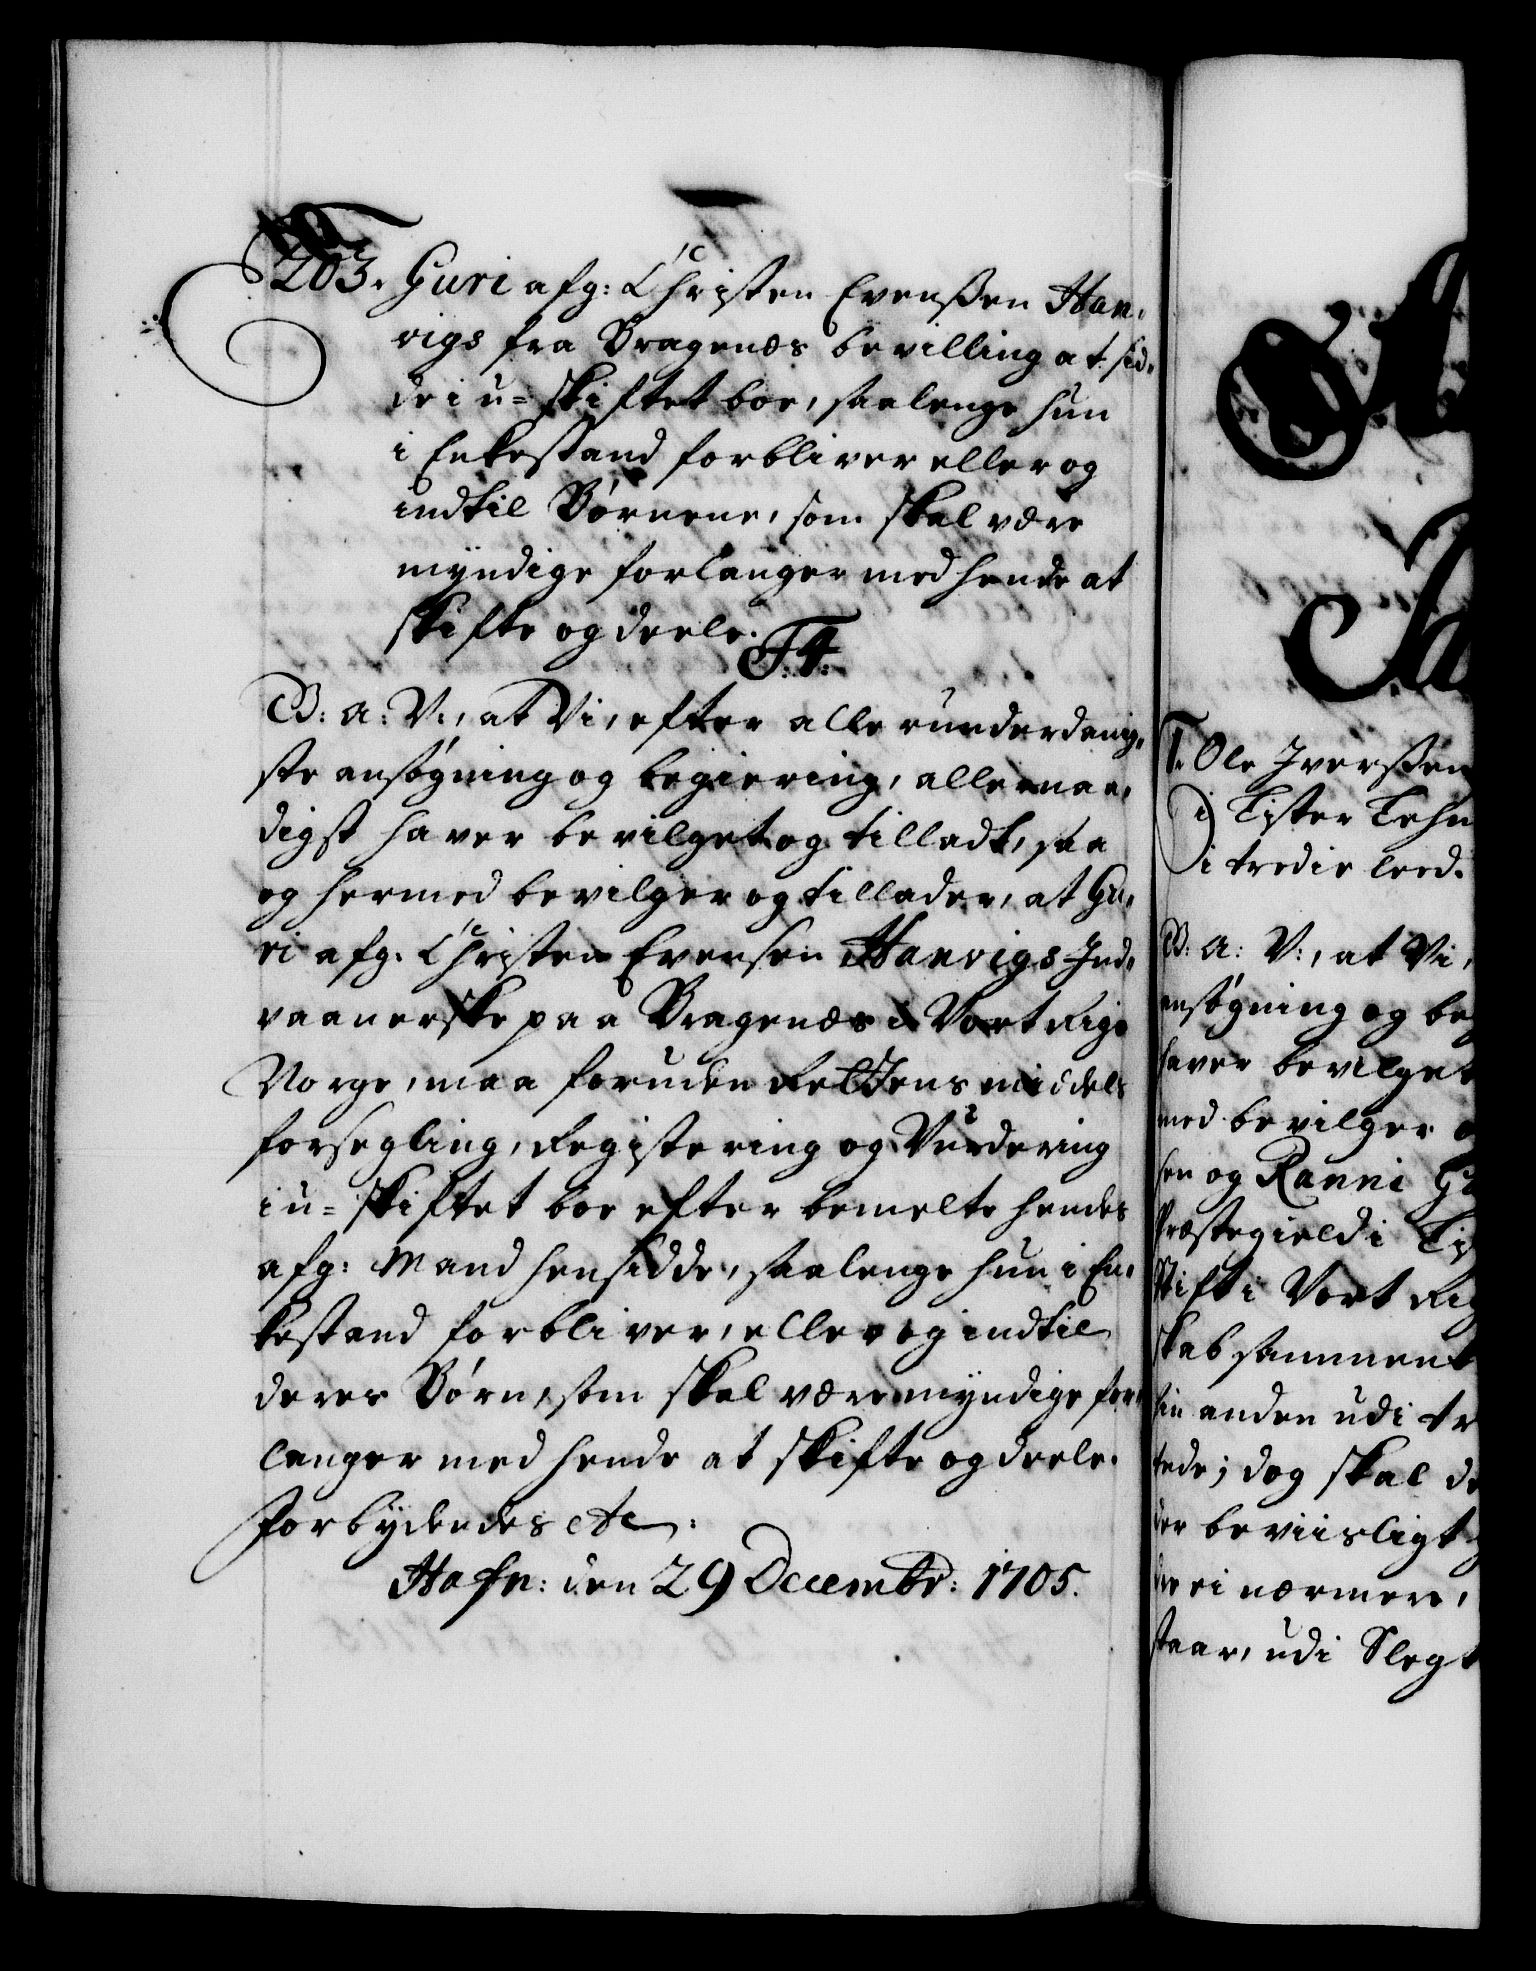 203. Guri afg: Christen Evenssen Han,
vigs fra Bragenæs bevilling at sid,
de i u= skiftet boe, saalenge hun
i Enkestand forbliver eller og
indtil Børnene, som skal være
myndige forlanger med hende at
skifte og deele.
F4.
B: A: V:, at Vi, efter allerunderdanig,
ste ansøgning og begiering, allernaa,
digst haver bevilget og tilladt, saa
og hermed bevilger og tillader, at Gu,
ri afg. Christen Evensen Hanvigs Ind,
vaanerske paa Bragenæs i Vort Rige
Norge, maa foruden Rettens middels
forsegling, Registering og Vurdering
i u= skiftet boe efter bemelte hendes
afg: Mand hensidde, saalenge hun i En,
kestand forbliver, eller og indtil
deres Børn, som skal være myndige for,
langer med hende at skifte og deele.
Forbydendes etc:
Hafn: den 29 Decembr: 1705.
1. Ole Iverssen
i Tister Lehn
i tredie leed.
B: A: V:, at Vi,
ansøgning og beg
haver bevilget
med bevilger o
sen og Ranni Gu
Præstegield i Tis
Stift i Vort Rig
skab sammen
hin anden udi tr
tede; dog skal de
der beviisligt
der ei nærmere,
staar, udi Slegt